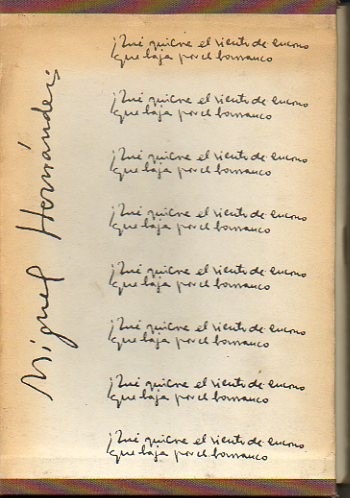 Miguel Hernández
¿Qué quiere el viento de encono
que baja por el barranco
¿Qué quiere el viento de encono
que baja por el barranco
¿Qué quiere el viento de encono
que baja por el barranco
¿Qué quiere el viento de encono
que baja por el barranco
¿Qué quiere el viento de encono
que baja por el barranco
¿Qué quiere el viento de encono
que baja por el barranco
¿Qué quiere el viento de encono
que baja por el barranco
¿Qué quiere el viento de encono
que baja por el barranco